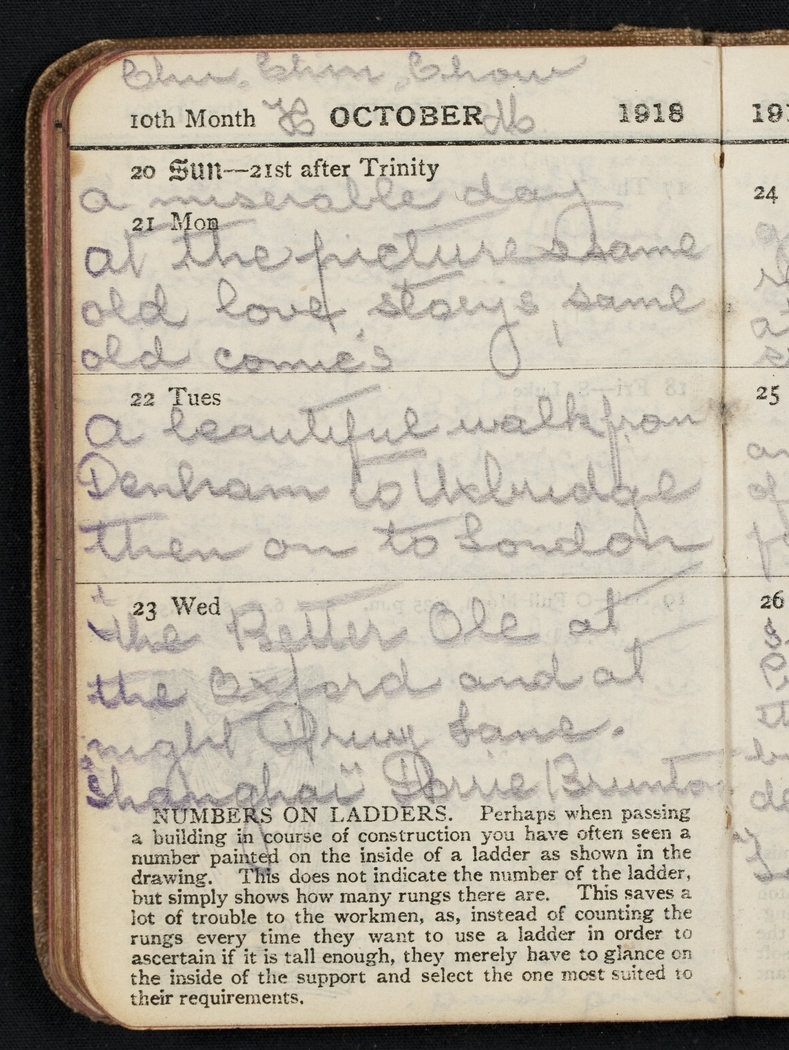 Chu. Chin. Chow
10th Month OCTOBER 1918
20 Sun—21st after Trinity
a miserable day
21 Mon
at the pictures same
old love story's, same
old comic's
22 Tues
A beautiful walk from
Denham to Uxbridge
then on to London
23 Wed
the Better Ole at
the Oxford and at
night Drury Lane.
Shanghai Dorrie Brunton
NUMBERS ON LADDERS. Perhaps when passing
a building in course of construction you have often seen a
number painted on the inside of a ladder as shown in the
drawing. This does not indicate the number of the ladder,
but simply shows how many rungs there are. This saves a
lot of trouble to the workmen, as, instead of counting the
rungs every time they want to use a ladder in order to
ascertain if it is tall enough, they merely have to glance on
the inside of the support and select the one most suited to
their requirements.
191
24
25
26